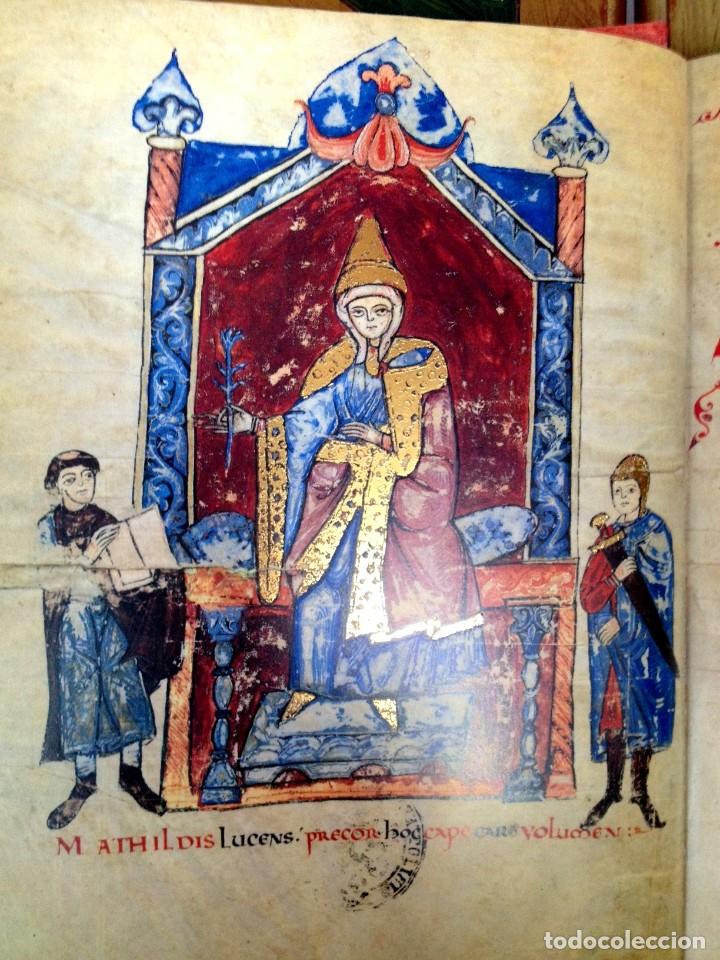 MATHILDIS LUCENS: PRECOR hoc CAPE CARA VOLUMEN:
todocoleccion